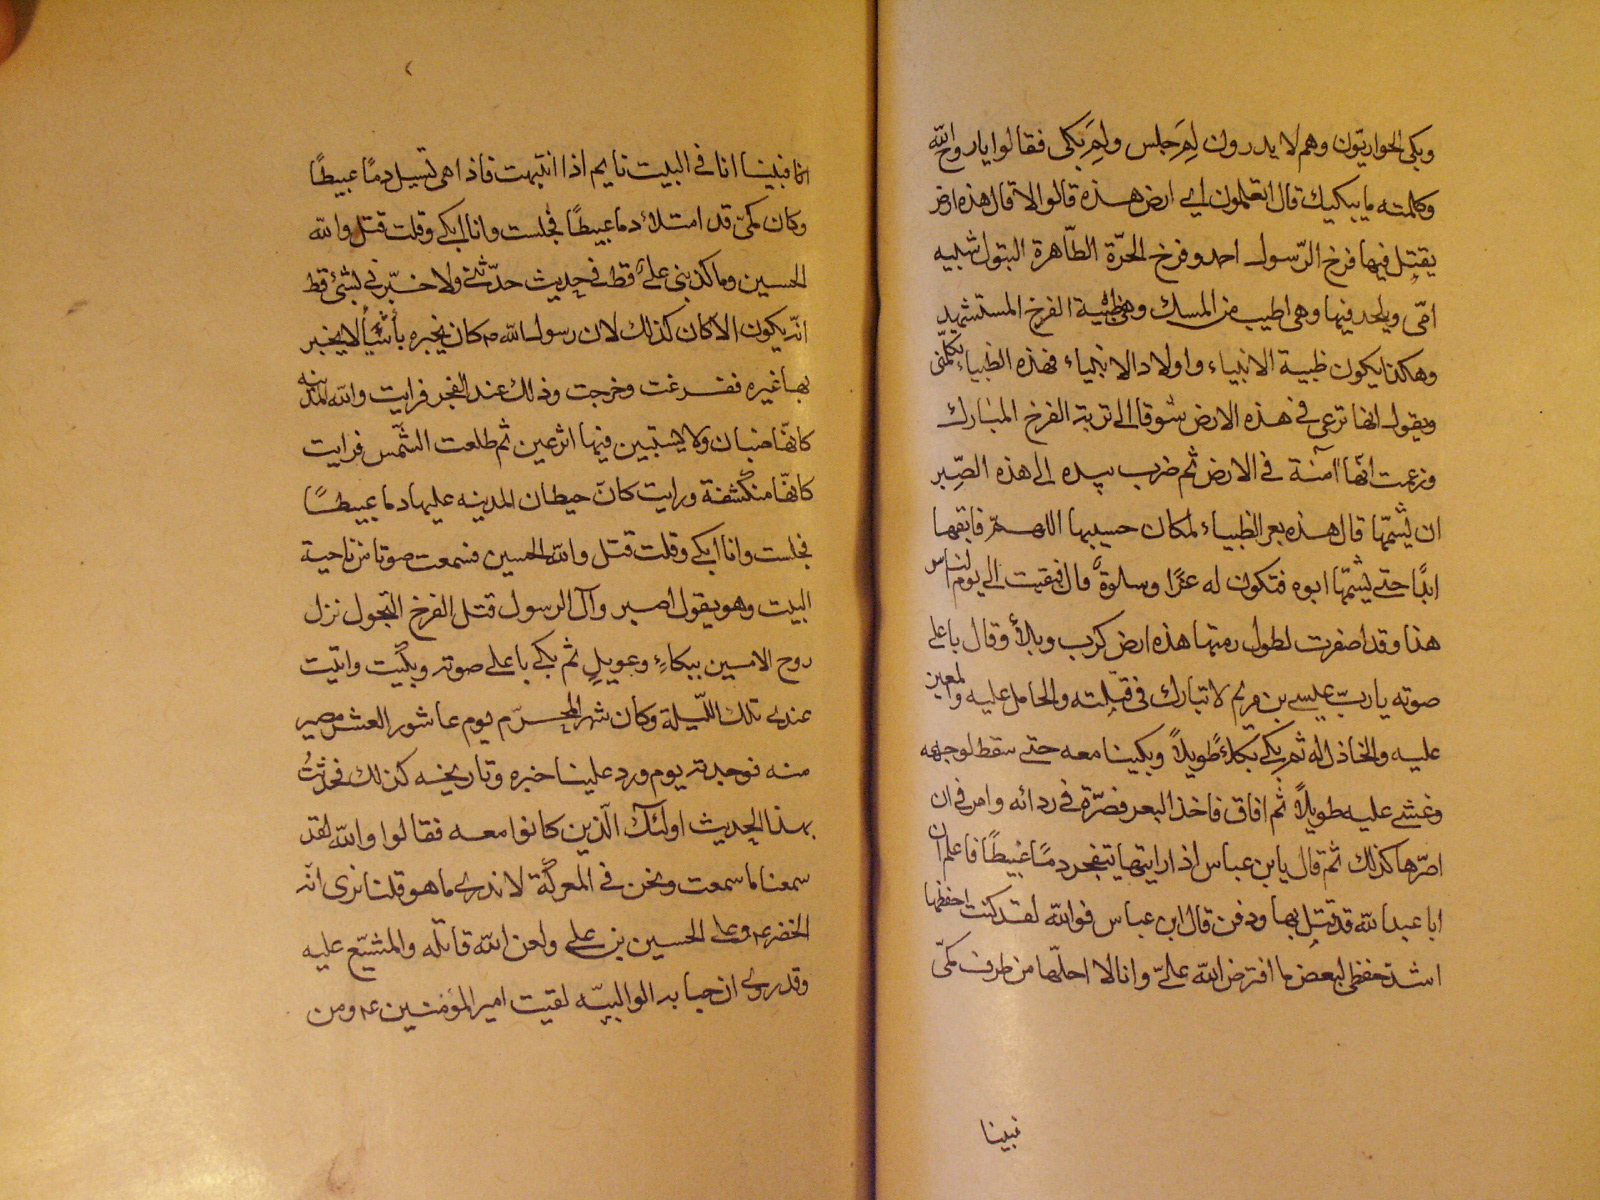 وبكى الحواريّون وهم لا يدرون لِمَ جلس ولِمَ بكى فقالوا يا روح الله
وكلمته ما يبكيك قال اتعلمون اي ارض هذه قالوا لا قال هذه ارض
يقتل فيها فرخ الرّسول احمد وفرخ الحرّة الطّاهرة البتول شبيه
امّى ويلحد فيها وهى اطيب من المسك وهى طينة الفرخ المستشهد
وهكذا يكون طينة الانبياء واولاد الانبياء فهذه الظباء تكلّمنى
ويقول انها ترعى فى هذه الارض شوقا الى تربة الفرخ المبارك
وزعمت انّها آمنة فى الارض ثم ضرب بيده الى هذه الصّير
ان يشمّها قال هذه بعر الظباء لمكان حسيبها اللهمّ فابقها
ابدًا حتى يشمّها ابوه فتكون له عزًا وسلوةً قال فبقيت الى يوم الناس
هذا وقد اصفرت لطول زمنها هذه ارض كرب وبلأ وقال باعلى
صوته يا ربّ عيسى بن مريم لا تبارك فى قتلته والحامل عليه والمعين
عليه والخاذل له ثم بكى بكاءً طويلاً وبكينا معه حتى سقط لوجهه
وغشى عليه طويلاً ثم افاق فاخذ البعر فصّرة فى ردائه وامرنى ان
اصرّها كذلك ثم قال يابن عباس اذا رايتها تتفجر دمًا عبيطًا فاعلم ان
ابا عبدالله قد قتل بها ودفن قال ابن عباس فوالله لقد كنت احفظها
اشد حفظى لبعض ما افترض الله علىّ وانا لا احلّها من طرف كمّى
فبينا
انما فبينا انا فى البيت نايم اذا انتبهت فاذا هى تسيل دمًا عبيطًا
وكان كمّى قد امتلأ دما عبيطًا فجلست وانا ابكى وقلت قتل والله
الحسين وما كذبنى علىٌ قط فى حديث حدّثنى ولا خبّرنى بشئ قط
انّه يكون الا كان كذلك لان رسول الله ص كان يخبره بأشيأ لا يخبر
بها غيره ففزعت وخرجت وذلك عند الفجر فرايت والله المدينه
كانّها ضباب ولا يستبين فيها اثر عين ثم طلعت الشّمس فرايت
كانّها منكشفة ورايت كانّ حيطان المدينه عليها دما عبيطًا
فجلست وانا ابكى وقلت قتل والله الحسين فسمعت صوتا من ناحية
البيت وهو يقول اصبر وا آل الرسول قتل الفرخ النجول نزل
روح الامين ببكاءٍ وعويلٍ ثم بكى باعلى صوته وبكيت واثبت
عندى تلك اللّيلة وكان شهر المحرّم يوم عاشورا لعشر مضين
منه فوجدته يوم ورد علينا خبره وتاريخه كذلك فحدّثتُ
بهذا الحديث اولئك الّذين كانوا معه فقالوا والله لقد
سمعنا ما سمعت ونحن فى المعركة لا ندرى ما هو قلنا نرى انّه
الخضر ع وعلى الحسين بن على ولعن الله قاتله والمشيّع عليه
وقد روى ان حبابه الوالبيّه لقيت امير المؤمنين ع ومن